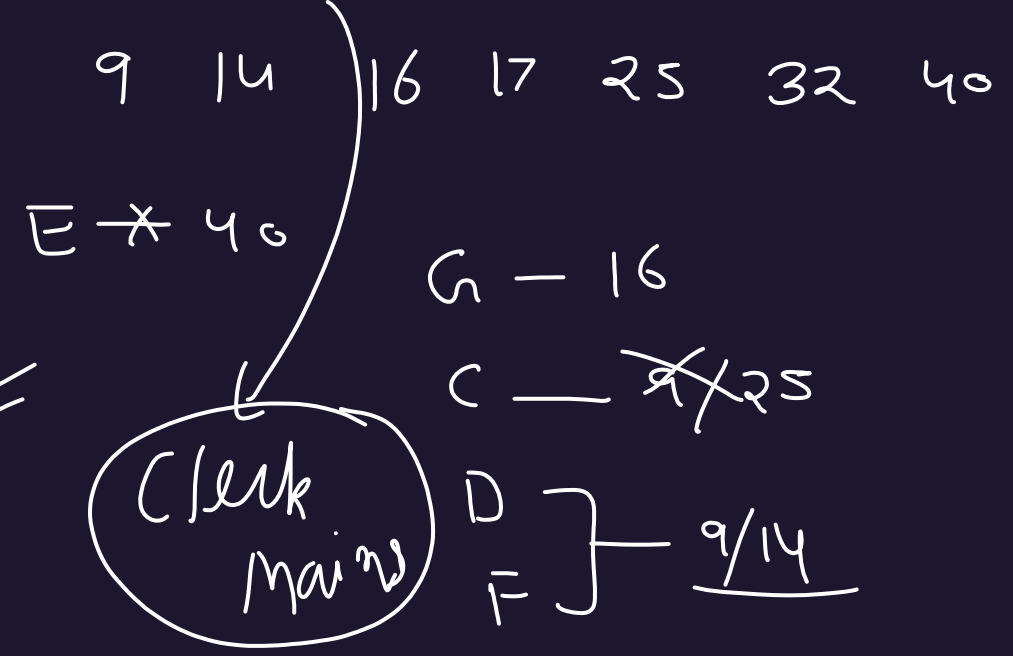 9 14 16 17 25 32 40
E — 40
G — 16
C — 9/25
Clerk
Mains
D
F
9/14